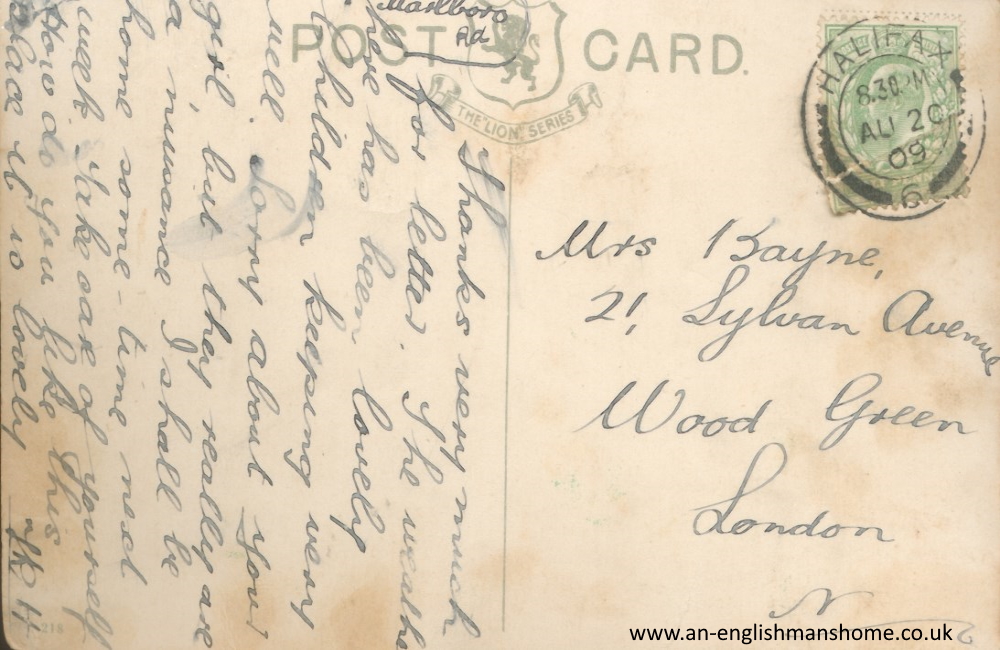 POST CARD.
THE "LION" SERIES
Marlboro
Rd
Thanks very much
for letter. The weather
here has been lovely
Children keeping very
well. Sorry about your
girl but they really are
a nuisance I shall be
home some-time next
week Take care of yourself
How do you like this
place it is so lovely
218
HALIFAX
8.30 PM
AU 20
09
6
Mrs Bayne,
21, Sylvan Avenue
Wood Green
London
N
www.an-englishmanshome.co.uk